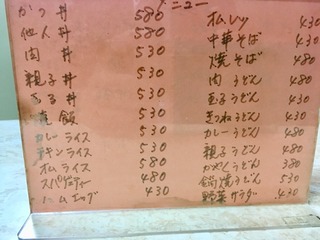 メニュー
かつ丼 580
他人丼 530
肉丼 530
親子丼 530
丼 530
飯 530
カレーライス 530
チキンライス 530
オムライス 580
スパゲティー 480
ハムエッグ 430
オムレツ 430
中華そば 430
焼そば 480
肉うどん 480
玉子うどん 430
きつねうどん 430
カレーうどん 480
親子うどん 480
かやくうどん 380
鍋焼うどん 530
野菜サラダ 430